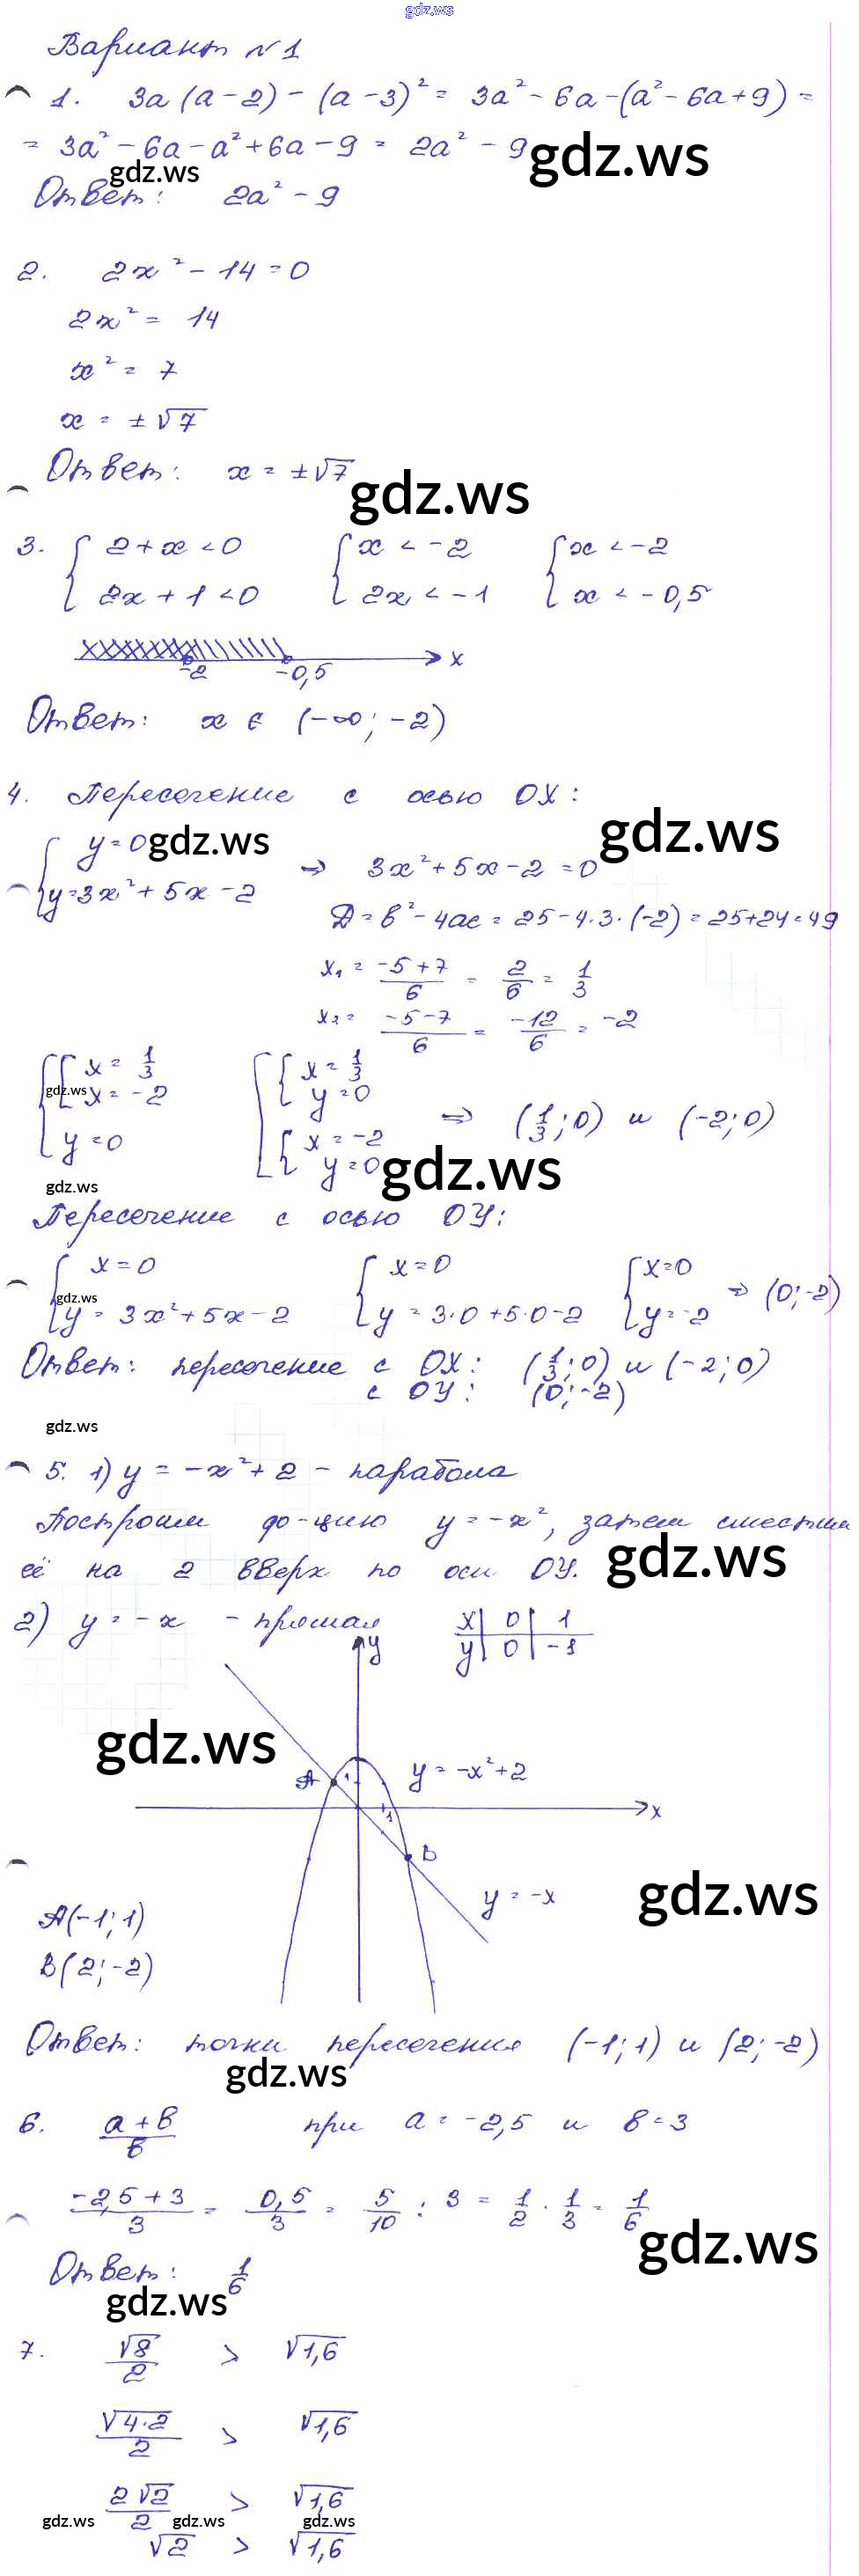 gdz.ws
Вариант №1
1. 3a(a-2)-(a-3)² = 3a²-6a-(a²-6a+9) =
= 3a²-6a-a²+6a-9 = 2a²-9
gdz.ws
gdz.ws
Ответ: 2a²-9
2. 2x²-14=0
2x² = 14
x² = 7
x = ±√7
Ответ: x = ±√7
gdz.ws
3. { 2+x<0 { x < -2 { x < -2
{ 2x+1<0 { 2x < -1 { x < -0,5
-2 -0,5 x
Ответ: x ∈ (-∞; -2)
4. Пересечение с осью OX:
gdz.ws
{ y=0 gdz.ws
{ y=3x²+5x-2 => 3x²+5x-2=0
D = b²-4ac = 25-4·3·(-2) = 25+24=49
x₁ = (-5+7)/6 = 2/6 = 1/3
x₂ = (-5-7)/6 = -12/6 = -2
{ [ x = 1/3 [ { x = 1/3
gdz.ws
{ [ x = -2 [ { y=0
{ y=0 [ { x = -2 => (1/3; 0) и (-2; 0)
[ { y=0
gdz.ws
gdz.ws
Пересечение с осью OY:
{ x=0 { x=0 { x=0
gdz.ws
{ y = 3x²+5x-2 { y = 3·0+5·0-2 { y=-2 => (0;-2)
Ответ: пересечение с OX: (1/3; 0) и (-2; 0)
с OY: (0; -2)
gdz.ws
5. 1) y = -x²+2 - парабола
Построим ф-цию y=-x², затем сместим
её на 2 вверх по оси OY.
gdz.ws
2) y = -x - прямая x | 0 | 1
y | 0 | -1
y
gdz.ws
A 1 y = -x²+2
1 x
B
y = -x
gdz.ws
A(-1; 1)
B(2; -2)
Ответ: точки пересечения (-1; 1) и (2; -2)
gdz.ws
6. (a+b)/b при a = -2,5 и b=3
(-2,5+3)/3 = 0,5/3 = 5/10 : 3 = 1/2 · 1/3 = 1/6
gdz.ws
Ответ: 1/6
gdz.ws
7. √8/2 > √1,6
√4·2/2 > √1,6
2√2/2 > √1,6
gdz.ws gdz.ws gdz.ws
√2 > √1,6